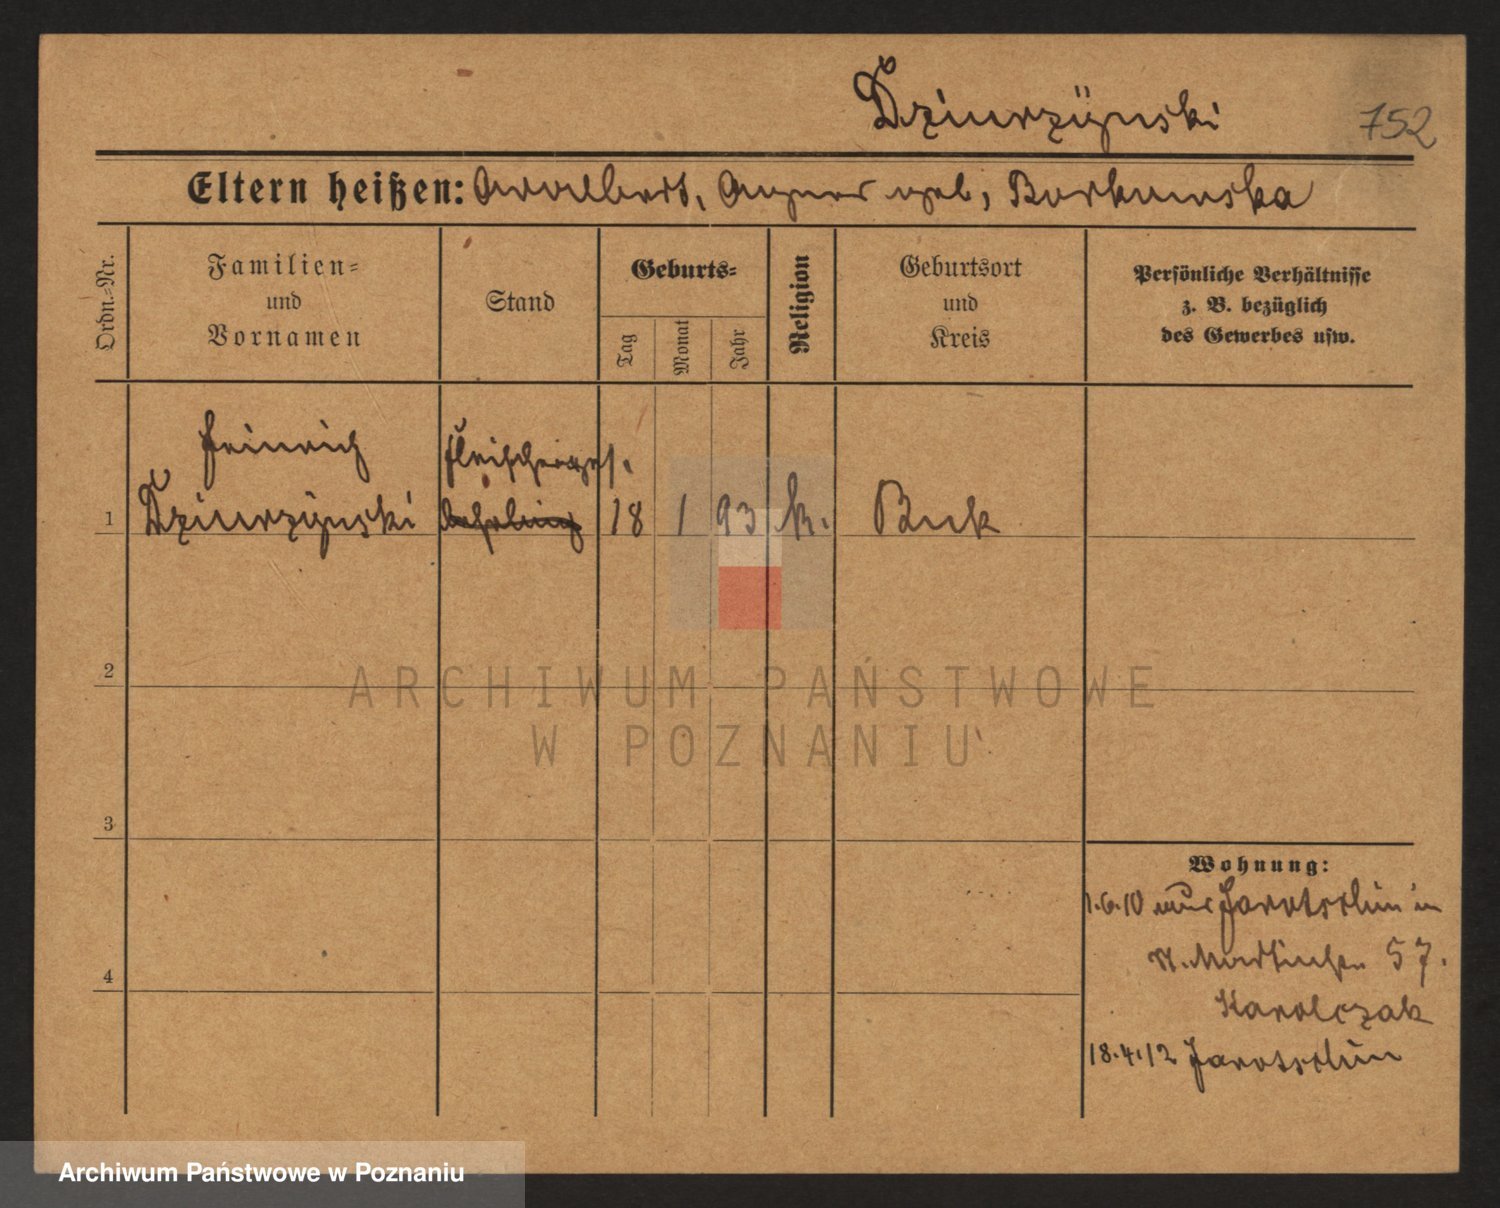 Dziurzÿnski
752
Eltern heißen: Adalbert, Agnes geb, Borkowska
Ordn.=Nr.
Familien=
und
Vornamen
Stand
Geburts=
Tag
Monat
Jahr
Religion
Geburtsort
und
Kreis
Persönliche Verhältnisse
z. B. bezüglich
des Gewerbes usw.
Heinrich
Fleischerges.
1
Dziurzÿnski
Lehrling
18
1
93
k.
Buk
2
ARCHIWUM PAŃSTWOWE
W POZNANIU
3
Wohnung:
1.6.10 aus Jarotschin in
St. Martinstr. 57.
Karolczak
4
18.4.12 Jarotschin
Archiwum Państwowe w Poznaniu